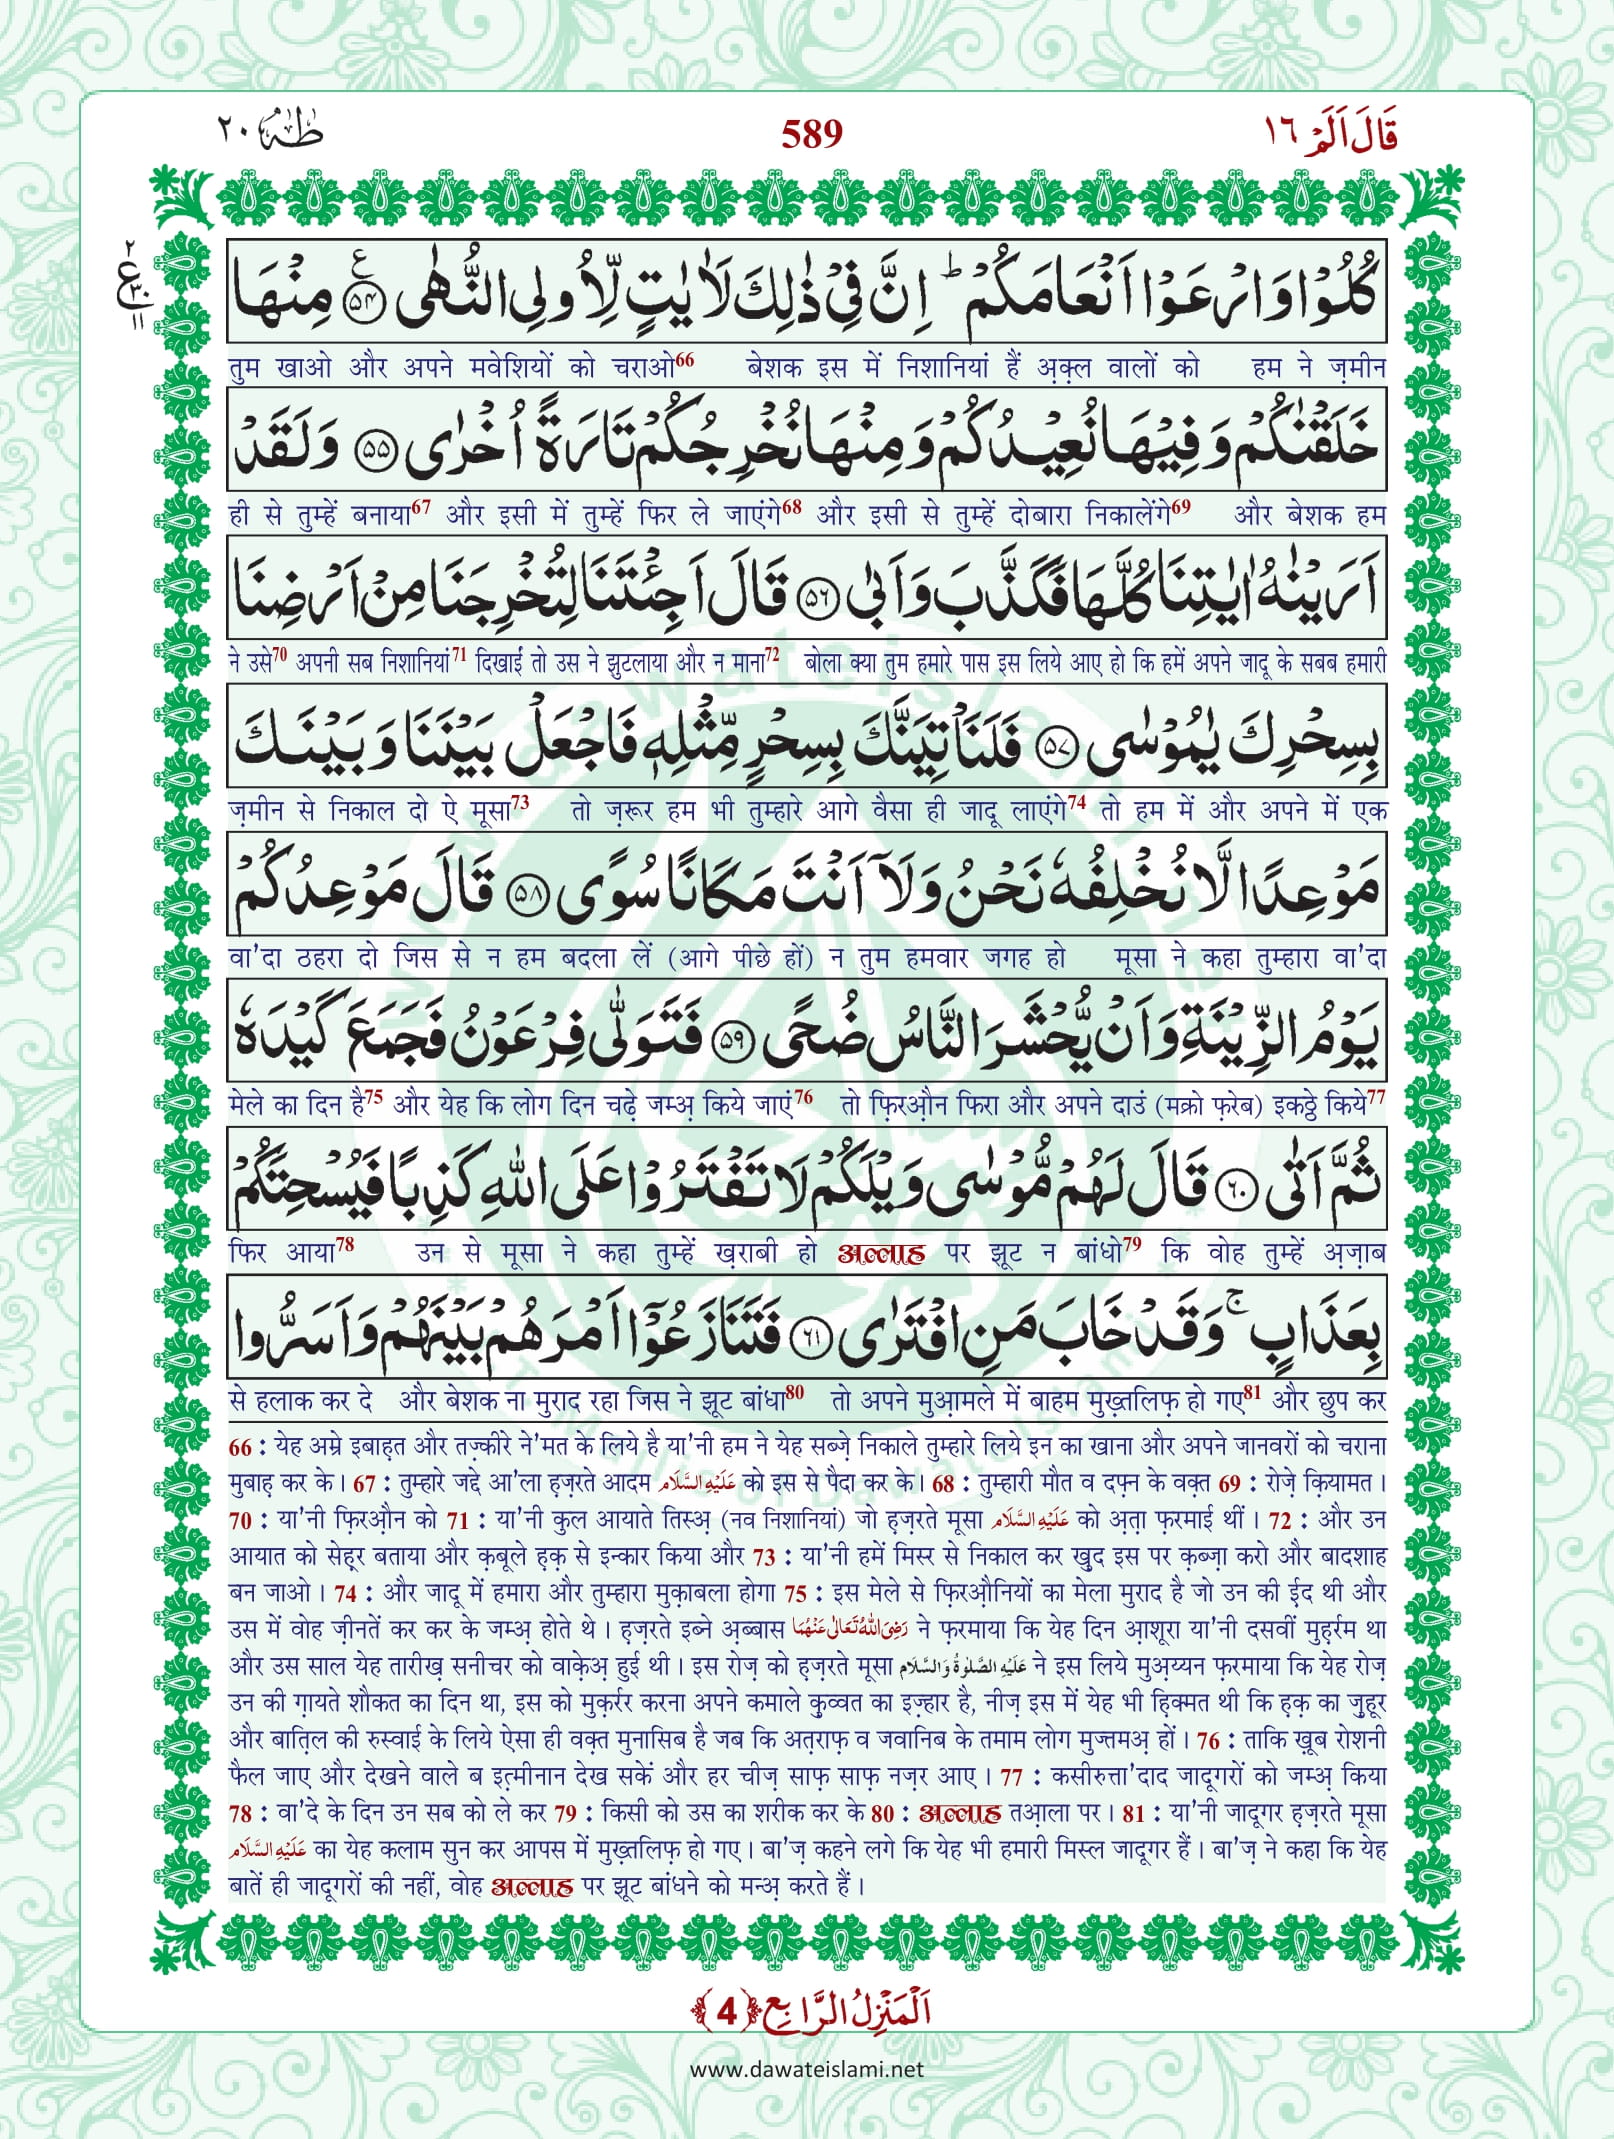 قَالَ اَلَمْ ١٦
589
طٰهٰ ٢٠
٢
ع
٣٠
١١
كُلُوْا وَارْعَوْا اَنْعَامَكُمْ ؕ اِنَّ فِیْ ذٰلِكَ لَاٰیٰتٍ لِّاُولِی النُّهٰى ﴿۵۴﴾ ع مِنْهَا
तुम खाओ और अपने मवेशियों को चराओ66 बेशक इस में निशानियां हैं अ़क़्ल वालों को हम ने ज़मीन
خَلَقْنٰكُمْ وَ فِیْهَا نُعِیْدُكُمْ وَ مِنْهَا نُخْرِجُكُمْ تَارَةً اُخْرٰى ﴿۵۵﴾ وَ لَقَدْ
ही से तुम्हें बनाया67 और इसी में तुम्हें फिर ले जाएंगे68 और इसी से तुम्हें दोबारा निकालेंगे69 और बेशक हम
اَرَیْنٰهُ اٰیٰتِنَا كُلَّهَا فَكَذَّبَ وَ اَبٰى ﴿۵۶﴾ قَالَ اَجِئْتَنَا لِتُخْرِجَنَا مِنْ اَرْضِنَا
ने उसे70 अपनी सब निशानियां71 दिखाईं तो उस ने झुटलाया और न माना72 बोला क्या तुम हमारे पास इस लिये आए हो कि हमें अपने जादू के सबब हमारी
بِسِحْرِكَ یٰمُوْسٰى ﴿۵۷﴾ فَلَنَاْتِیَنَّكَ بِسِحْرٍ مِّثْلِهٖ فَاجْعَلْ بَیْنَنَا وَ بَیْنَكَ
ज़मीन से निकाल दो ऐ मूसा73 तो ज़रूर हम भी तुम्हारे आगे वैसा ही जादू लाएंगे74 तो हम में और अपने में एक
مَوْعِدًا لَّا نُخْلِفُهٗ نَحْنُ وَ لَاۤ اَنْتَ مَكَانًا سُوًى ﴿۵۸﴾ قَالَ مَوْعِدُكُمْ
वा'दा ठहरा दो जिस से न हम बदला लें (आगे पीछे हों) न तुम हमवार जगह हो मूसा ने कहा तुम्हारा वा'दा
یَوْمُ الزِّیْنَةِ وَ اَنْ یُّحْشَرَ النَّاسُ ضُحًى ﴿۵۹﴾ فَتَوَلّٰى فِرْعَوْنُ فَجَمَعَ كَیْدَهٗ
मेले का दिन है75 और येह कि लोग दिन चढ़े जम्अ़ किये जाएं76 तो फ़िरऔ़न फिरा और अपने दाउं (मक्रो फ़रेब) इकठ्ठे किये77
ثُمَّ اَتٰى ﴿۶۰﴾ قَالَ لَهُمْ مُّوْسٰى وَیْلَكُمْ لَا تَفْتَرُوْا عَلَى اللّٰهِ كَذِبًا فَیُسْحِتَكُمْ
फिर आया78 उन से मूसा ने कहा तुम्हें ख़राबी हो अल्लाह पर झूट न बांधो79 कि वोह तुम्हें अ़ज़ाब
بِعَذَابٍ ۚ وَ قَدْ خَابَ مَنِ افْتَرٰى ﴿۶۱﴾ فَتَنَازَعُوْۤا اَمْرَهُمْ بَیْنَهُمْ وَ اَسَرُّوا
से हलाक कर दे और बेशक ना मुराद रहा जिस ने झूट बांधा80 तो अपने मुआ़मले में बाहम मुख़्तलिफ़ हो गए81 और छुप कर
66 : येह अम्रे इबाह़त और तज़्कीरे ने'मत के लिये है या'नी हम ने येह सब्ज़े निकाले तुम्हारे लिये इन का खाना और अपने जानवरों को चराना
मुबाह़ कर के। 67 : तुम्हारे जद्दे आ'ला ह़ज़रते आदम عَلَيْهِ السَّلَام को इस से पैदा कर के। 68 : तुम्हारी मौत व दफ़्न के वक़्त 69 : रोज़े क़ियामत।
70 : या'नी फ़िरऔ़न को 71 : या'नी कुल आयाते तिस्अ़ (नव निशानियां) जो ह़ज़रते मूसा عَلَيْهِ السَّلَام को अ़त़ा फ़रमाई थीं। 72 : और उन
आयात को सेह़्र बताया और क़बूले ह़क़ से इन्कार किया और 73 : या'नी हमें मिस्र से निकाल कर ख़ुद इस पर क़ब्ज़ा करो और बादशाह
बन जाओ। 74 : और जादू में हमारा और तुम्हारा मुक़ाबला होगा 75 : इस मेले से फ़िरऔ़नियों का मेला मुराद है जो उन की ईद थी और
उस में वोह ज़ीनतें कर कर के जम्अ़ होते थे। ह़ज़रते इब्ने अ़ब्बास رَضِىَ اللّٰهُ تَعَالٰى عَنْهُمَا ने फ़रमाया कि येह दिन आ़शूरा या'नी दसवीं मुह़र्रम था
और उस साल येह तारीख़ सनीचर को वाक़ेअ़ हुई थी। इस रोज़ को ह़ज़रते मूसा عَلَيْهِ الصَّلٰوةُ وَالسَّلَام ने इस लिये मुअ़य्यन फ़रमाया कि येह रोज़
उन की ग़ायते शौकत का दिन था, इस को मुक़र्रर करना अपने कमाले कुव्वत का इज़्हार है, नीज़ इस में येह भी ह़िक्मत थी कि ह़क़ का ज़ुहूर
और बात़िल की रुस्वाई के लिये ऐसा ही वक़्त मुनासिब है जब कि अत़राफ़ व जवानिब के तमाम लोग मुज्तमअ़ हों। 76 : ताकि ख़ूब रोशनी
फैल जाए और देखने वाले ब इत़्मीनान देख सकें और हर चीज़ साफ़ साफ़ नज़र आए। 77 : कसीरुत्ता'दाद जादूगरों को जम्अ़ किया
78 : वा'दे के दिन उन सब को ले कर 79 : किसी को उस का शरीक कर के 80 : अल्लाह तआ़ला पर। 81 : या'नी जादूगर ह़ज़रते मूसा
عَلَيْهِ السَّلَام का येह कलाम सुन कर आपस में मुख़्तलिफ़ हो गए। बा'ज़ कहने लगे कि येह भी हमारी मिस्ल जादूगर हैं। बा'ज़ ने कहा कि येह
बातें ही जादूगरों की नहीं, वोह अल्लाह पर झूट बांधने को मन्अ़ करते हैं।
اَلْمَنْزِلُ الرَّابِع ﴿4﴾
www.dawateislami.net